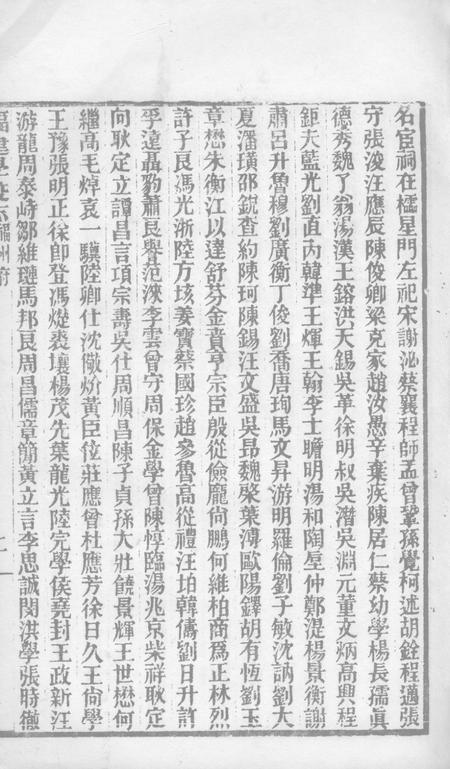 名宦祠在櫺星門左祀宋謝泌蔡襄程師孟曾鞏孫覺柯述胡銓程邁張
守張浚汪應辰陳俊卿梁克家趙汝愚辛棄疾陳居仁蔡幼學楊長孺眞
德秀魏了翁湯漢王鎔洪天錫吳革徐明叔吳潛吳淵元董文炳高興程
鉅夫藍光劉直內韓準王煇王翰李士瞻明湯和陶垕仲鄭湜楊景衡謝
肅呂升魯穆劉廣衡丁俊劉喬唐珣馬文昇游明羅倫劉子敏沈訥劉大
夏潘璜邵銳查約陳珂陳錫汪文盛吳昂魏棨葉溥歐陽鐸胡有恆劉玉
章懋朱衡江以達舒芬金賁亨宗臣殷從儉龐尚鵬何維柏商為正林烈
許子良馮光浙陸方垓姜寶蔡國珍趙參魯高從禮汪珀韓儔劉日升許
孚遠聶豹蕭良譽范淶李雲曾守周保金學曾陳惇臨湯兆京柴祥耿定
向耿定立譚昌言項宗壽吳仕周順昌陳子貞孫大壯饒景輝王世懋何
繼高毛焯袁一驥陸卿仕沈儆炌黃臣位莊應曾杜應芳徐日久王尚學
王豫張明正徐即登馮嫟裘壤楊茂先葉龍光陸完學侯堯封王政新汪
游龍周泰峙鄒維璉馬邦良周昌儒章簡黃立言李思誠閔洪學張時徹